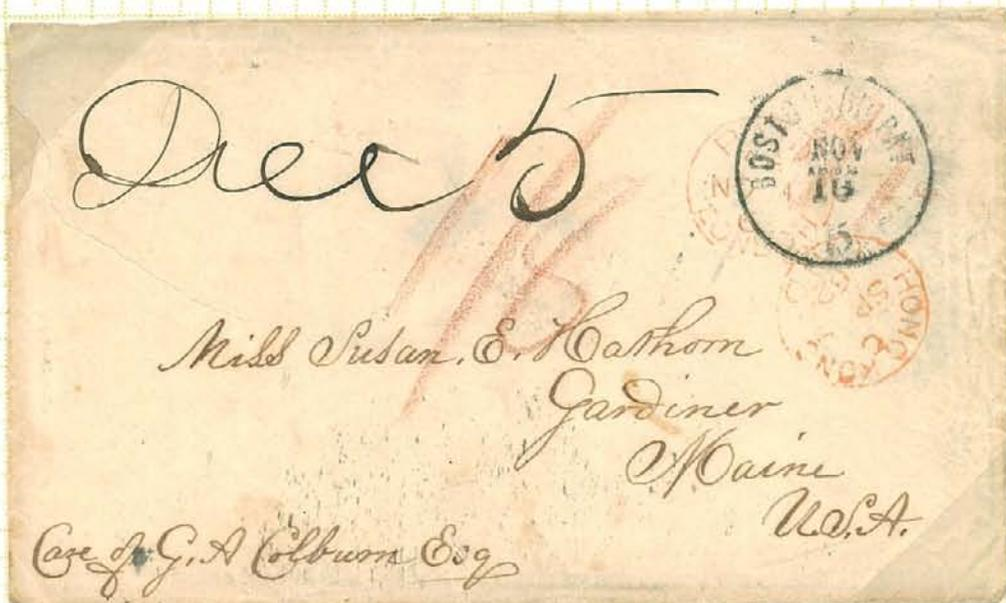 Dec 5
BOSTON BR. PKT
NOV
16
HONG KONG
SP
Miss Susan. E. Hathorn
Gardiner
Maine
U.S.A.
Care of G. A Colburn Esq